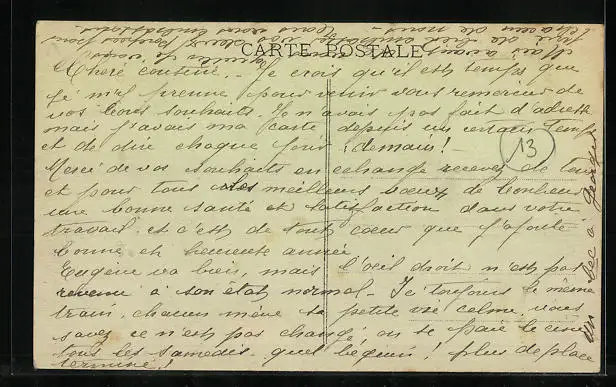 CARTE POSTALE
Chère cousine. - Je crois qu'il est temps que
je m'y prenne pour venir vous remercier de
vos bons souhaits. Je n'avais pas fait d'adresse
mais j'avais ma carte depuis un certain temps
et de dire chaque jour : demain! -
13
Merci de vos souhaits en échange recevez de tous
et pour tous nos meilleurs vœux de bonheur
une bonne santé et satisfaction dans votre
travail et c'est de tout cœur que j'ajoute
bonne et heureuse année
Eugène va bien, mais l'œil droit n'est pas
revenu à son état normal - Je toujours le même
train, chacun mène sa petite vie calme, vous
savez ce n'est pas changé, on se paie le ciné
tous les samedis, quel béguin! plus de place
terminé!
Mais avant
de nous
un bec à